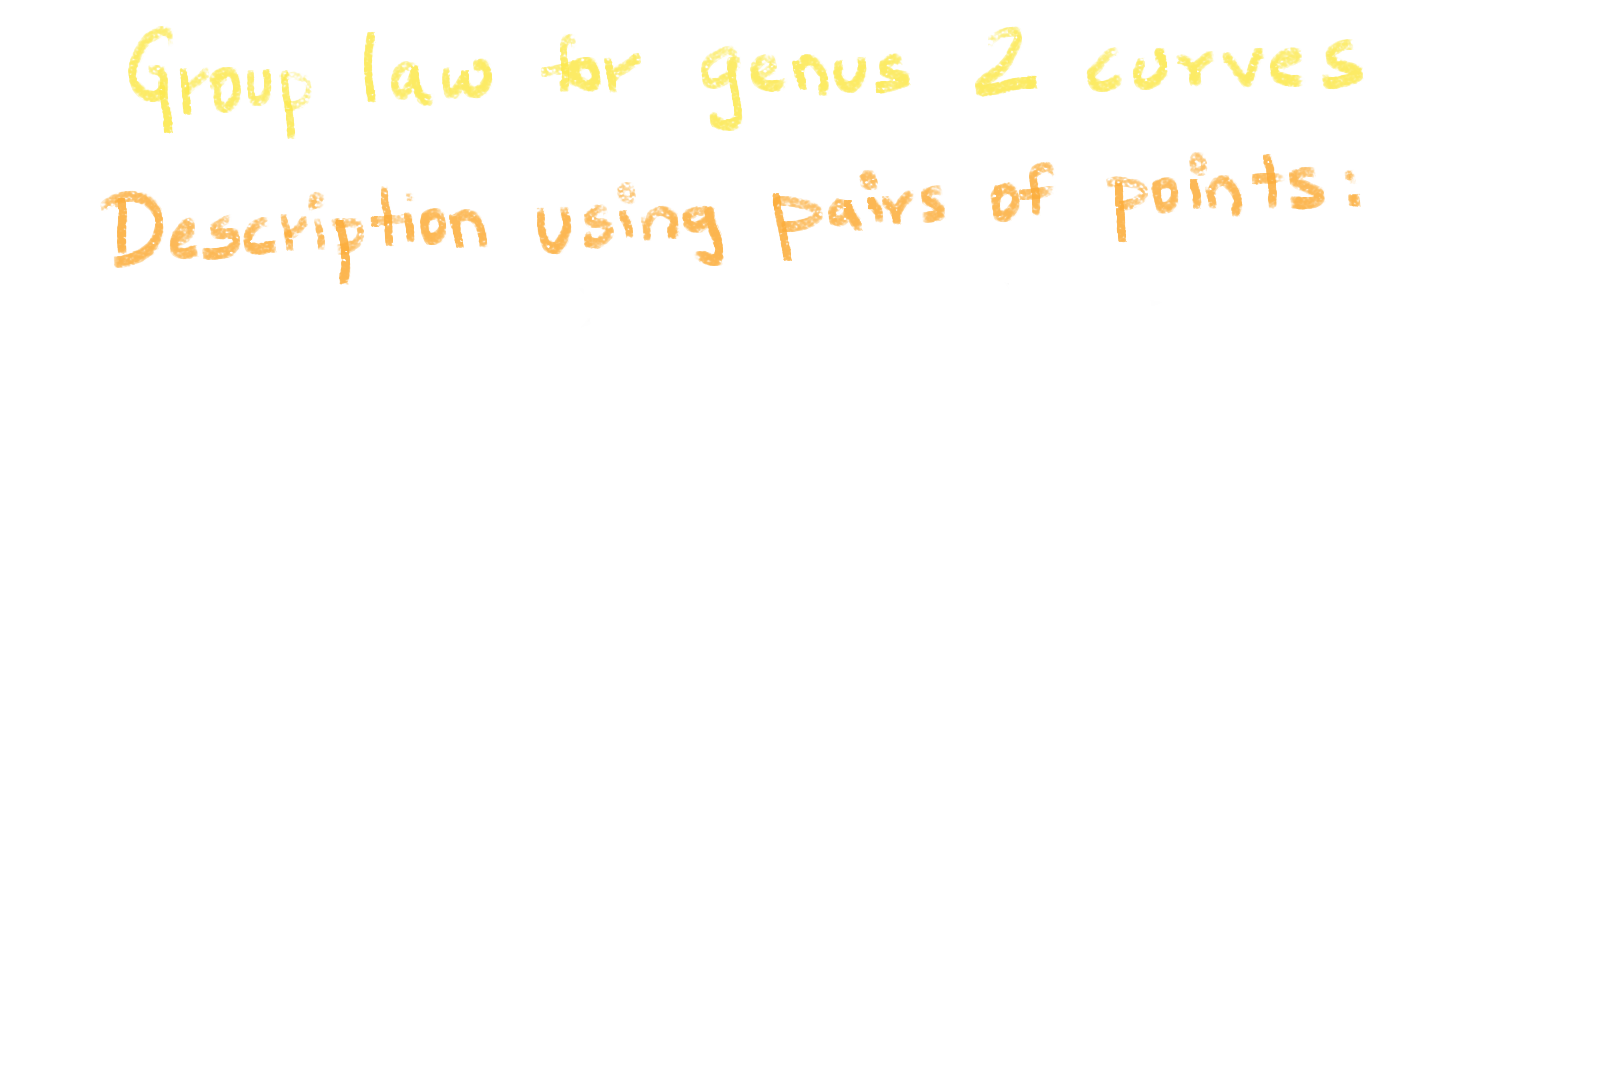 Group law for genus 2 curves
Description using pairs of points: